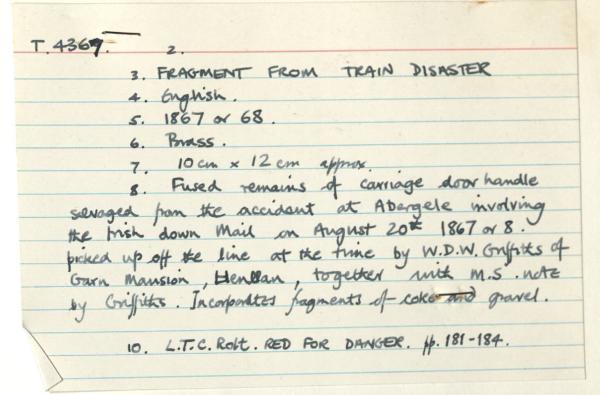 T.4369. 2.
3. FRAGMENT FROM TRAIN DISASTER
4. English.
5. 1867 or 68.
6. Brass.
7. 10 cm x 12 cm approx.
8. Fused remains of carriage door handle
savaged from the accident at Abergele involving
the Irish down Mail on August 20th 1867 or 8.
picked up off the line at the time by W.D.W. Griffiths of
Garn Mansion, Henllan, together with M.S. note
by Griffiths. Incorporates fragments of coke and gravel.
10. L.T.C. Rolt. RED FOR DANGER. pp. 181-184.